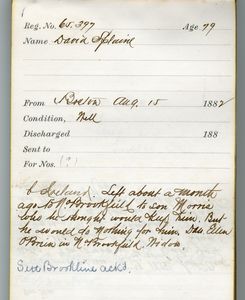 Reg. No. 65,397 Age 79
Name David Splaine
From Boston Aug. 15 1882
Condition, Well
Discharged 188
Sent to
For Nos. (?)
b Ireland. Left about a month
ago to No Brookfield to son Morris
who he thought would keep him. But
he would do nothing for him. Dau. Ellen
O'Brien in No Brookfield. Widow.
See Brookline acks.